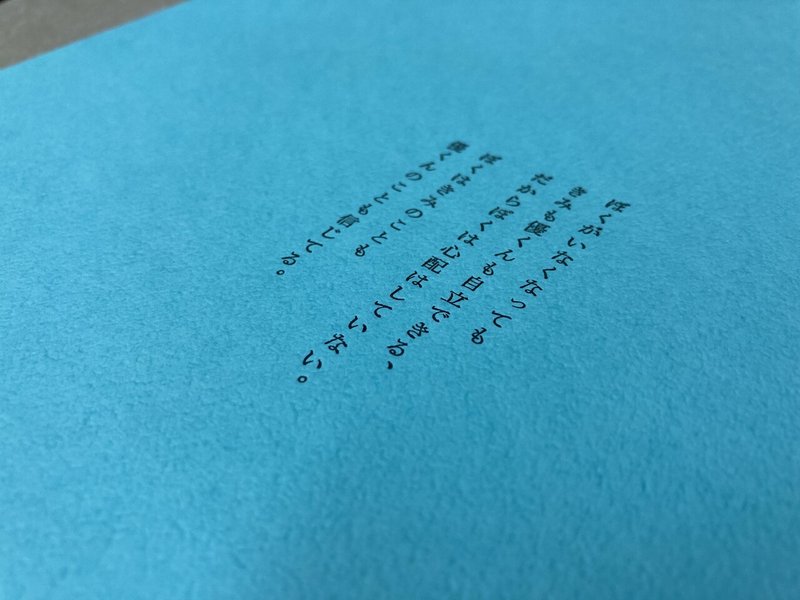 ぼくがいなくなっても
きみも優くんも自立できる、
だからぼくは心配はしていない。
ぼくはきみのことも
優くんのことも信じてる。